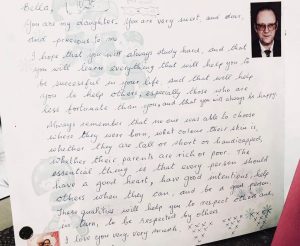 Bella,
You are my daughter. You are very sweet and dear,
and precious to me.
I hope that you will always study hard, and that
you will learn everything that will help you to
be successful in your life, and that will help
you to help others, especially those who are
less fortunate than you, and that you will always be happy.
Always remember that no one was able to choose
where they were born, what colour their skin is,
whether they are tall or short or handicapped,
whether their parents are rich or poor. The
essential thing is that every person should
have a good heart, have good intentions, help
others when they can, and be a good person.
These qualities will help you to respect others and,
in turn, to be respected by others.
I love you very, very much,